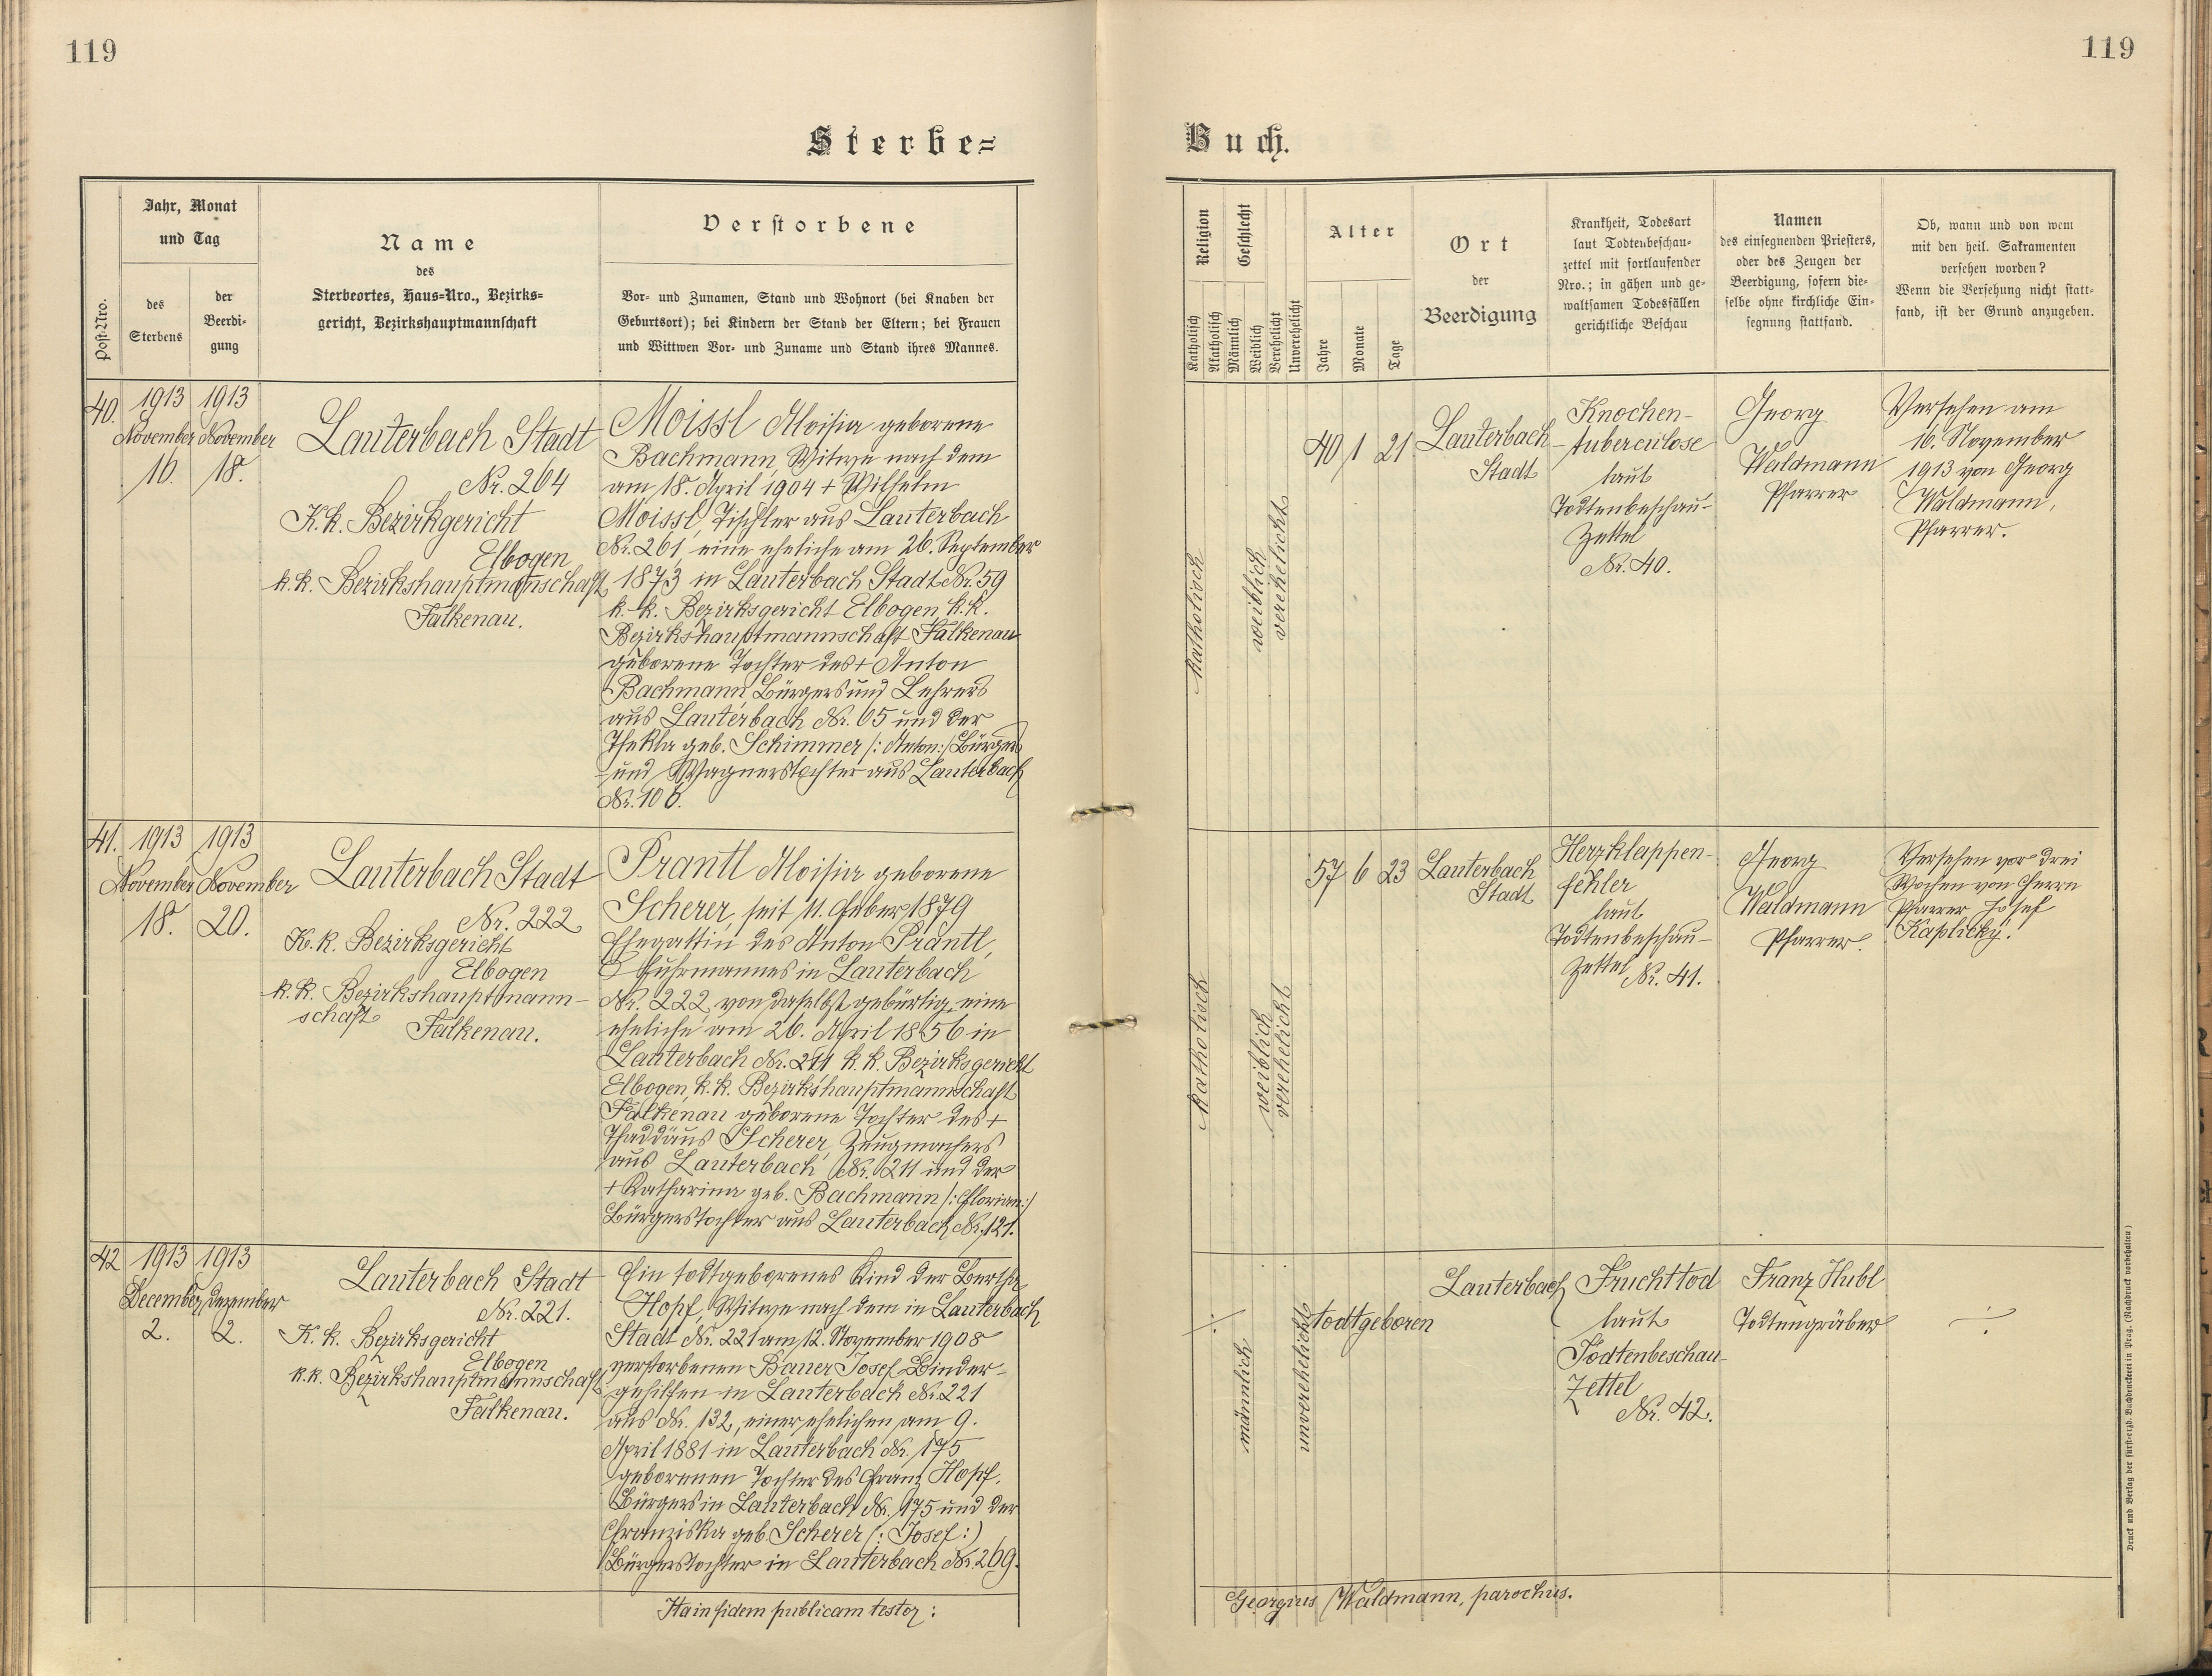 119
119
Sterbe=
Buch.
Post-Nro.
Jahr, Monat
und Tag
des
Sterbens
der
Beerdi-
gung
Name
des
Sterbeortes, Haus-Nro., Bezirks-
gericht, Bezirkshauptmannschaft
Verstorbene
Vor- und Zunamen, Stand und Wohnort (bei Knaben der
Geburtsort); bei Kindern der Stand der Eltern; bei Frauen
und Wittwen Vor- und Zuname und Stand ihres Mannes.
Religion
Katholisch
Akatholisch
Geschlecht
Männlich
Weiblich
Verehelicht
Unverehelicht
Alter
Jahre
Monate
Tage
Ort
der
Beerdigung
Krankheit, Todesart
laut Todtenbeschau-
zettel mit fortlaufender
Nro.; in gähen und ge-
waltsamen Todesfällen
gerichtliche Beschau
Namen
des einsegnenden Priesters,
oder des Zeugen der
Beerdigung, sofern die-
selbe ohne kirchliche Ein-
segnung stattfand.
Ob, wann und von wem
mit den heil. Sakramenten
versehen worden?
Wenn die Versehung nicht statt-
fand, ist der Grund anzugeben.
40.
1913 1913
November November
16. 18.
Lauterbach Stadt
Nr. 264
K. k. Bezirkgericht
Elbogen
k. k. Bezirkshauptmannschaft
Falkenau.
Moissl Aloisia geborene
Bachmann, Witwe nach dem
am 18. April 1904 + Wilhelm
Moissl, Tischler aus Lauterbach
Nr. 261, eine eheliche am 26. September
1873 in Lauterbach Stadt Nr. 59
k. k. Bezirksgericht Elbogen, k. k.
Bezirkshauptmannschaft Falkenau
geborene Tochter des + Anton
Bachmann, Bürgers und Lehrers
aus Lauterbach Nr. 65 und der
Thekla geb. Schimmer /: Anton :/ Bürgers
und Wagnerstochter aus Lauterbach
Nr. 106.
katholisch
weiblich
verehelicht
40 1 21
Lauterbach
Stadt
Knochen-
tuberculose
laut
Todtenbeschau-
Zettel
Nr. 40.
Georg
Waldmann
Pfarrer
Versehen am
16. November
1913 von Georg
Waldmann,
Pfarrer.
41.
1913 1913
November November
18. 20.
Lauterbach Stadt
Nr. 222
K. k. Bezirksgericht
Elbogen
k. k. Bezirkshauptmann-
schaft
Falkenau.
Prantl Aloisia geborene
Scherer, seit 11. Feber 1879
Ehegattin des Anton Prantl,
Fuhrmannes in Lauterbach
Nr. 222, von daselbst gebürtig, eine
eheliche am 26. April 1856 in
Lauterbach Nr. 211 k. k. Bezirksgericht
Elbogen, k. k. Bezirkshauptmannschaft
Falkenau geborene Tochter des +
Thaddäus Scherer, Zeugmachers
aus Lauterbach Nr. 211 und der
+ Katharina geb. Bachmann /: Florian :/
Bürgerstochter aus Lauterbach Nr. 121.
katholisch
weiblich
verehelicht
57 6 23
Lauterbach
Stadt
Herzklappen-
fehler
laut
Todtenbeschau-
Zettel Nr. 41.
Georg
Waldmann
Pfarrer.
Versehen vor drei
Wochen von Herrn
Pfarrer Josef
Kaplicky.
42
1913 1913
December Dezember
2. 2.
Lauterbach Stadt
Nr. 221.
K. k. Bezirksgericht
Elbogen
k. k. Bezirkshauptmannschaft
Falkenau.
Ein todtgeborenes Kind der Bertha
Hopf, Witwe nach dem in Lauterbach
Stadt Nr. 221 am 12. November 1908
verstorbenen Bauer Josef, Binder-
gehilfen in Lauterbach Nr. 221
aus Nr. 132, einer ehelichen am 9.
April 1881 in Lauterbach Nr. 175
geborenen Tochter des Franz Hopf,
Bürgers in Lauterbach Nr. 175 und der
Franziska geb. Scherer (: Josef :)
Bürgerstochter in Lauterbach Nr. 269.
männlich
unverehelicht
todtgeboren
Lauterbach
Fruchttod
laut
Todtenbeschau-
Zettel
Nr. 42.
Franz Hubl
Todtengräber
Ita in fidem publicam testor:
Georgius Waldmann, parochus.
Druck und Verlag der fürst-erzb. Buchdruckerei in Prag. (Nachdruck vorbehalten.)